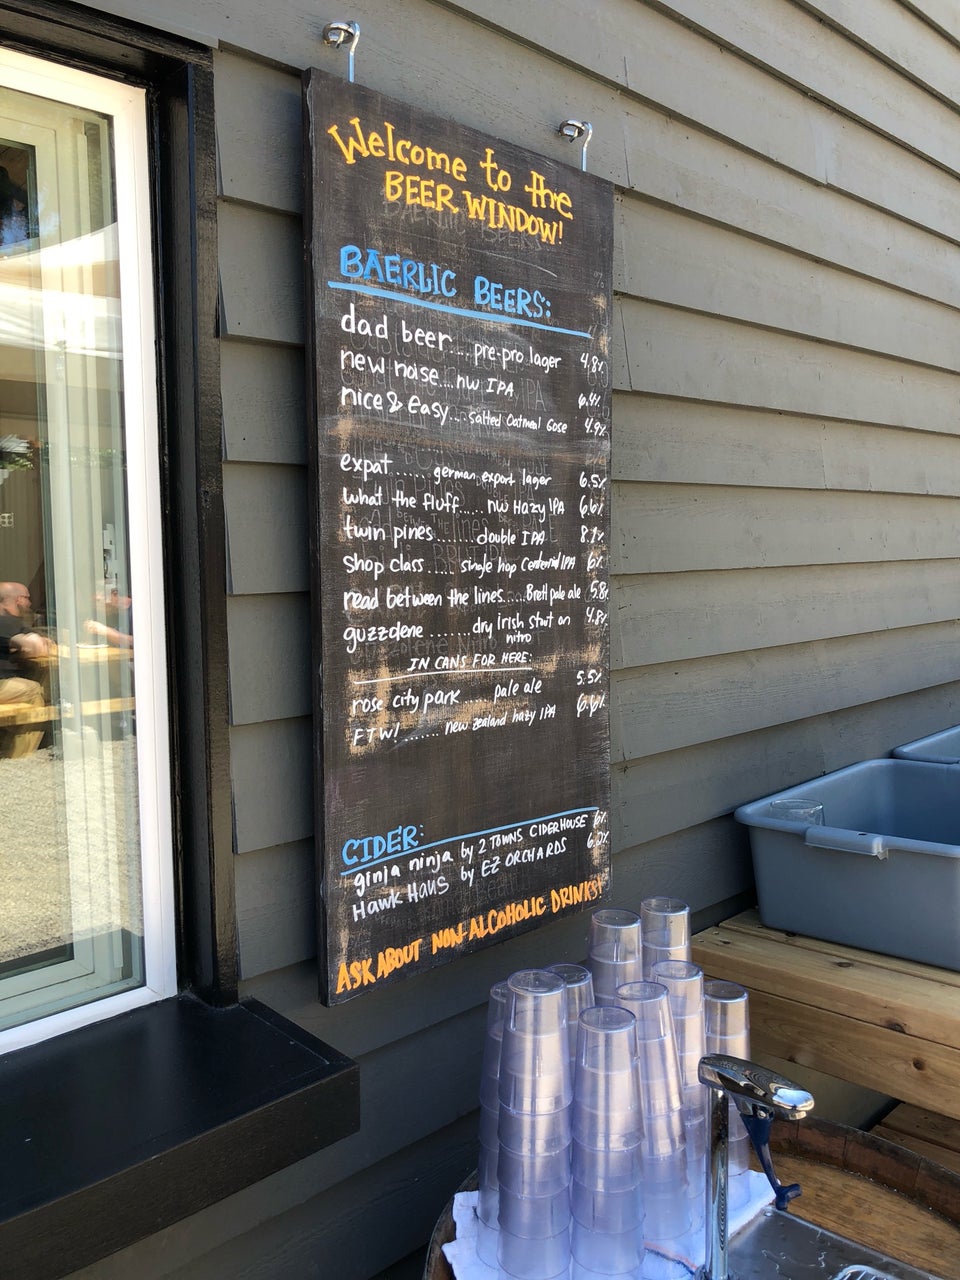 Welcome to the
BEER WINDOW!
BAERLIC BEERS:
dad beer... pre-pro lager 4.8%
new noise... nw IPA 6.4%
nice & easy... salted Oatmeal Gose 4.9%
expat...... german export lager 6.5%
what the fluff..... nw Hazy IPA 6.6%
twin pines........ double IPA 8.1%
shop class..... single hop Centennial IPA 6%
read between the lines..... Brett pale ale 5.8%
guzzdene ....... dry irish stout on nitro 4.8%
IN CANS FOR HERE:
rose city park.... pale ale 5.5%
FTW! ....... new zealand hazy IPA 6.6%
CIDER:
ginja ninja by 2 TOWNS CIDERHOUSE 6%
Hawk Haus by EZ ORCHARDS
ASK ABOUT NON-ALCOHOLIC DRINKS!